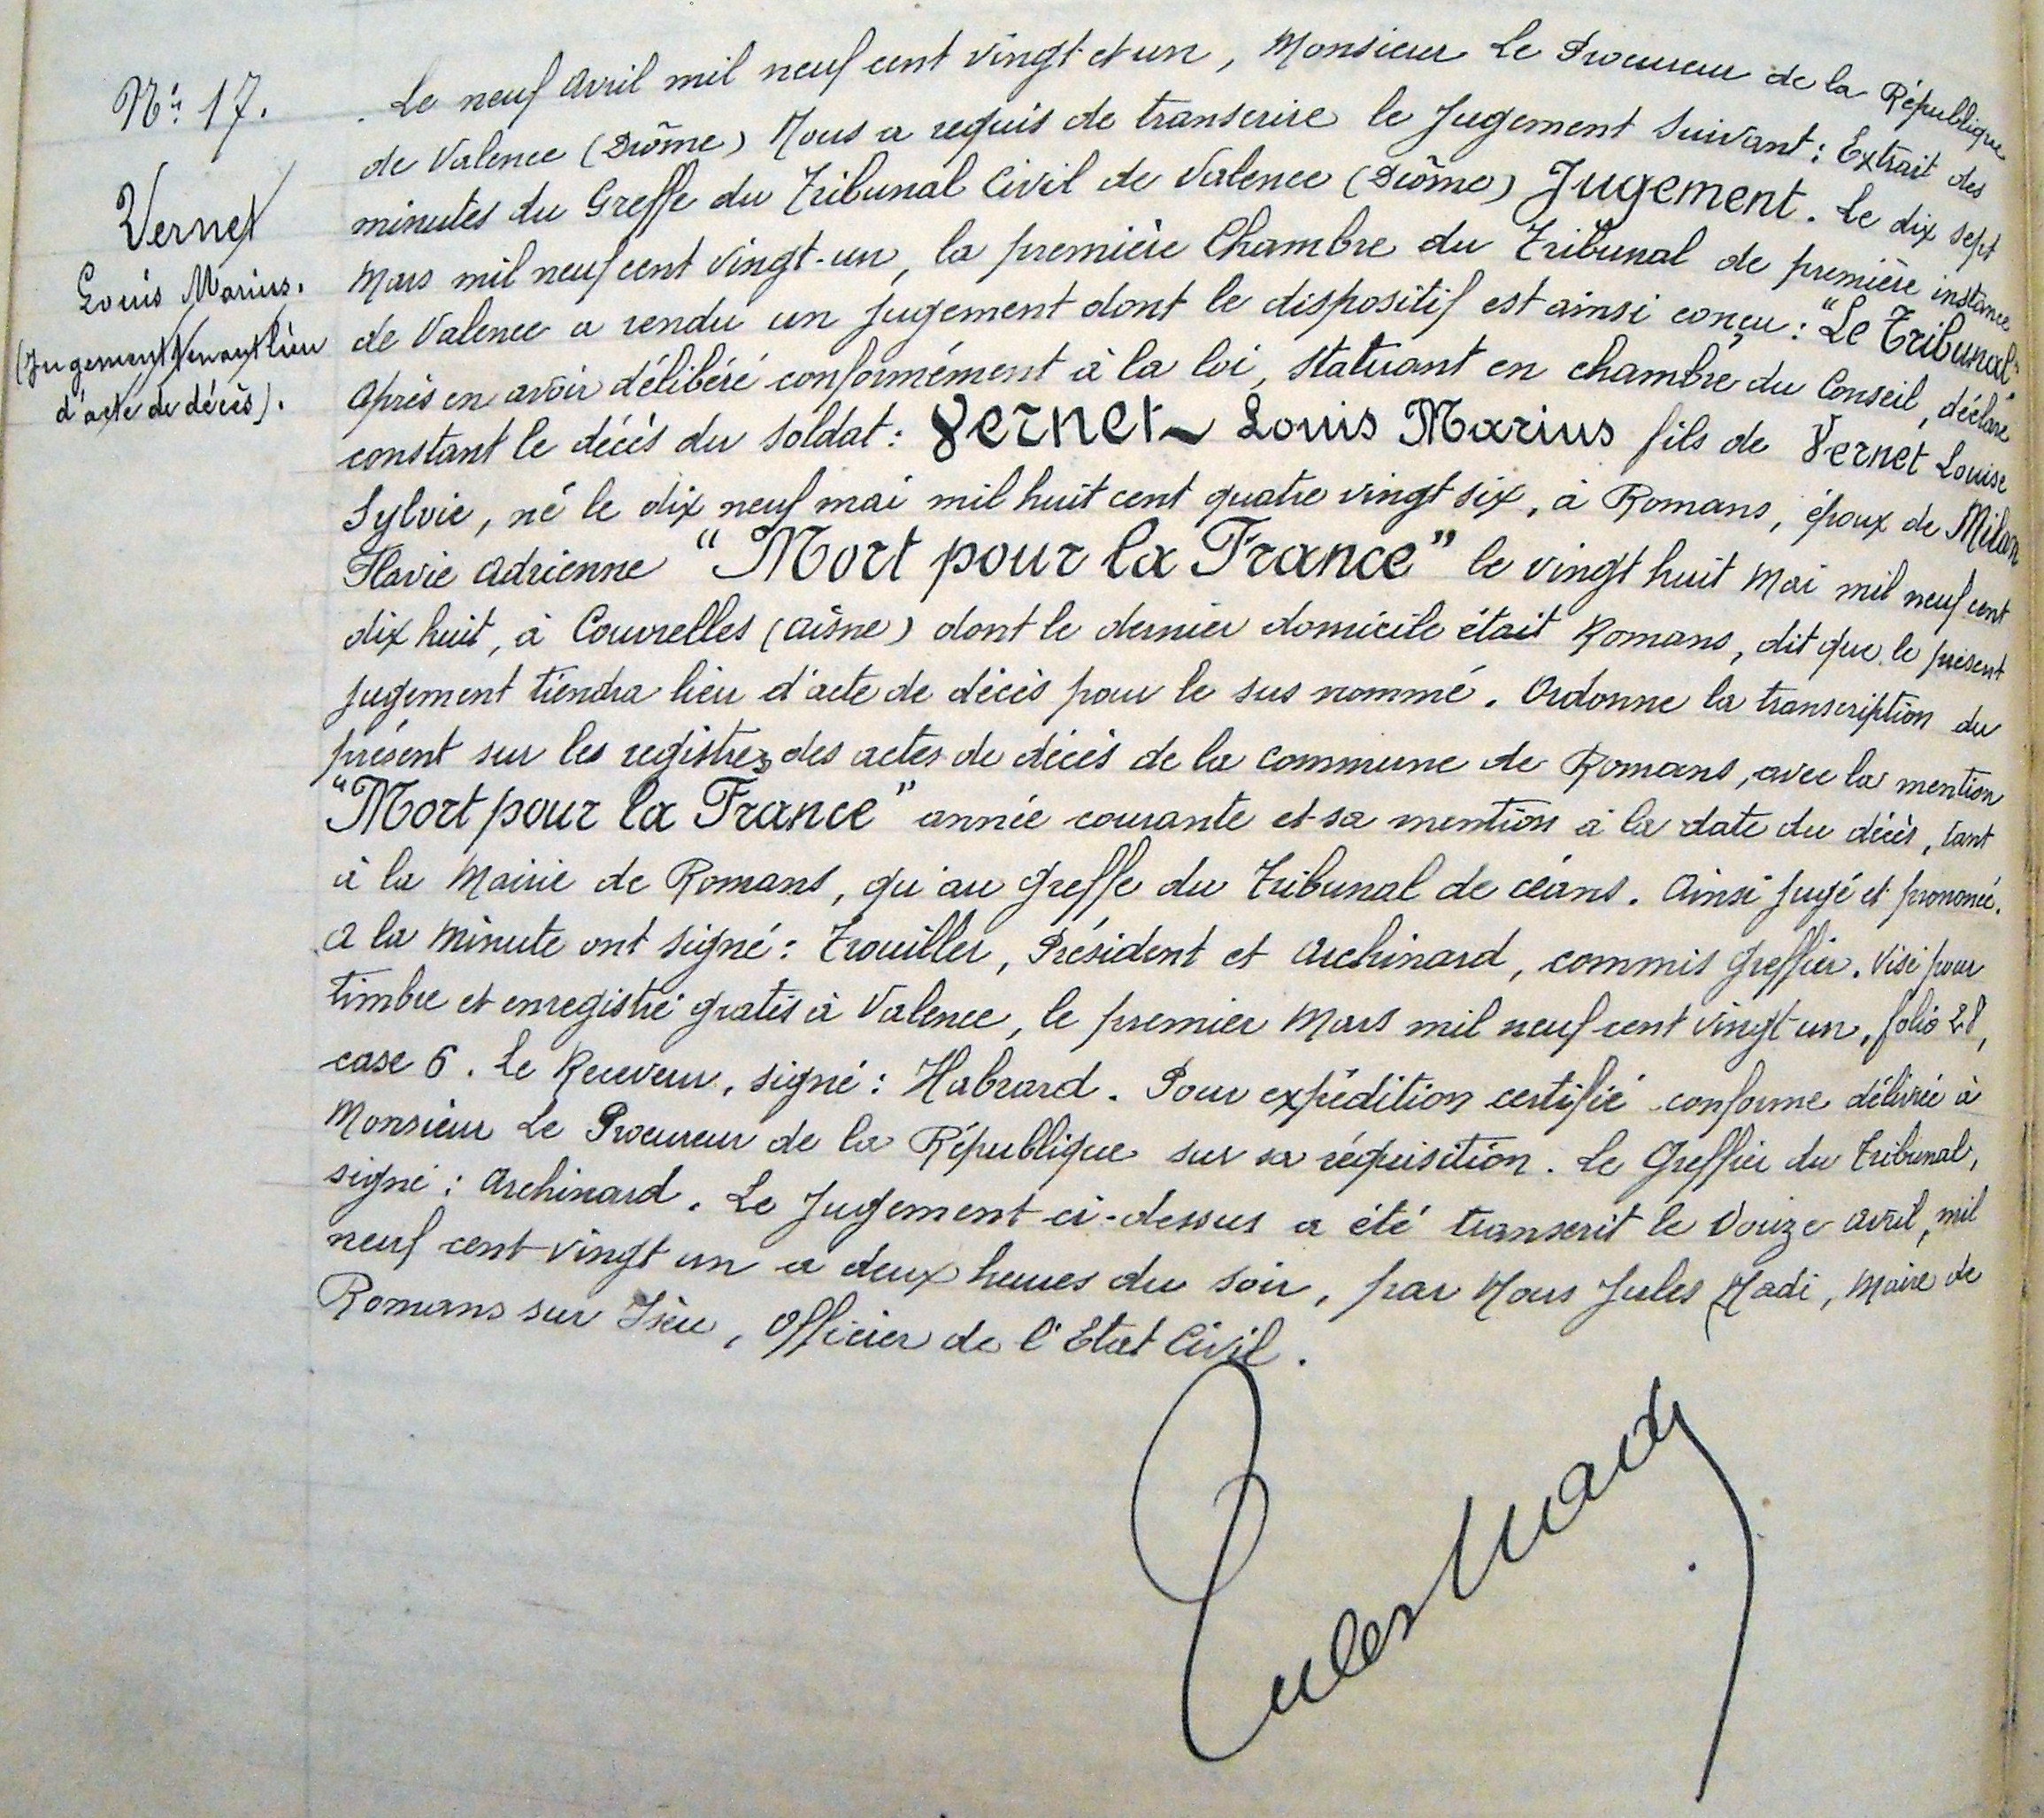 N° 17.
Vernet
Louis Marius.
(Jugement tenant lieu
d'acte de décès).
Le neuf Avril mil neuf cent vingt et un, Monsieur Le Procureur de la République
de Valence (Drôme) Nous a requis de transcrire le Jugement suivant : Extrait des
minutes du Greffe du Tribunal Civil de Valence (Drôme) Jugement. Le dix sept
Mars mil neuf cent vingt-un, la première Chambre du Tribunal de première instance
de Valence a rendu un jugement dont le dispositif est ainsi conçu : "Le Tribunal"
Après en avoir délibéré conformément à la loi, statuant en chambre du Conseil, déclare
constant le décès du soldat : Vernet Louis Marius fils de Vernet Louise
Sylvie, né le dix neuf mai mil huit cent quatre vingt six, à Romans, époux de Milan
Flavie Adrienne "Mort pour la France" le vingt huit Mai mil neuf cent
dix huit, à Couvrelles (Aisne) dont le dernier domicile était Romans, dit que le présent
jugement tiendra lieu d'acte de décès pour le sus nommé. Ordonne la transcription du
présent sur les registres des actes de décès de la commune de Romans, avec la mention
"Mort pour la France" année courante et sa mention à la date du décès, tant
à la Mairie de Romans, qu'au Greffe du Tribunal de céans. Ainsi jugé et prononcé.
A la Minute ont signé : Trouiller, Président et Archinard, commis Greffier. Visé pour
timbre et enregistré gratis à Valence, le premier Mars mil neuf cent vingt un, folio 28,
case 6. Le Receveur, signé : Habrard. Pour expédition certifié conforme délivrée à
Monsieur Le Procureur de la République sur sa réquisition. Le Greffier du Tribunal,
signé : Archinard. Le Jugement ci-dessus a été transcrit le Douze Avril, mil
neuf cent vingt un a deux heures du soir, par Nous Jules Nadi, Maire de
Romans sur Isère, Officier de l'Etat Civil.
Jules Nadi